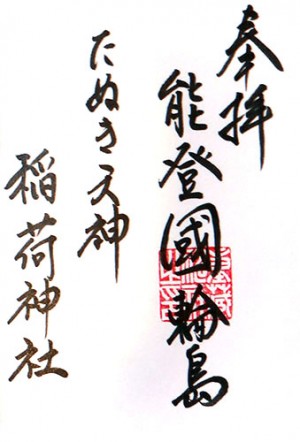 奉拝
能登國輪島
たぬき天神
稲荷神社